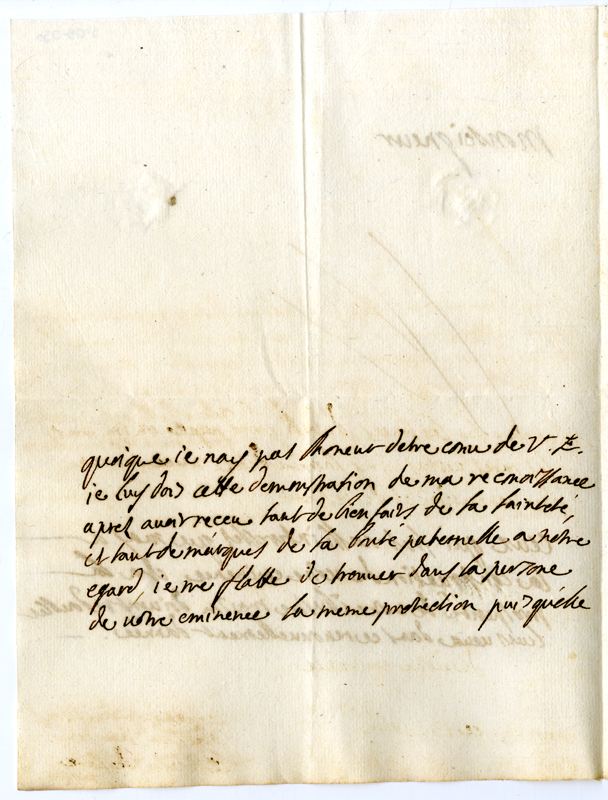 Monseigneur
quoique ie nay pas lhoneur detre conu de V. E.
ie luy dois cette demonstration de ma reconoissance
apres auoir receu tant de bien faits de sa sainteté,
et tant de marques de sa bonté paternelle a notre
egard, ie me flatte de trouuer dans la persone
de votre eminence la meme protection puisquelle